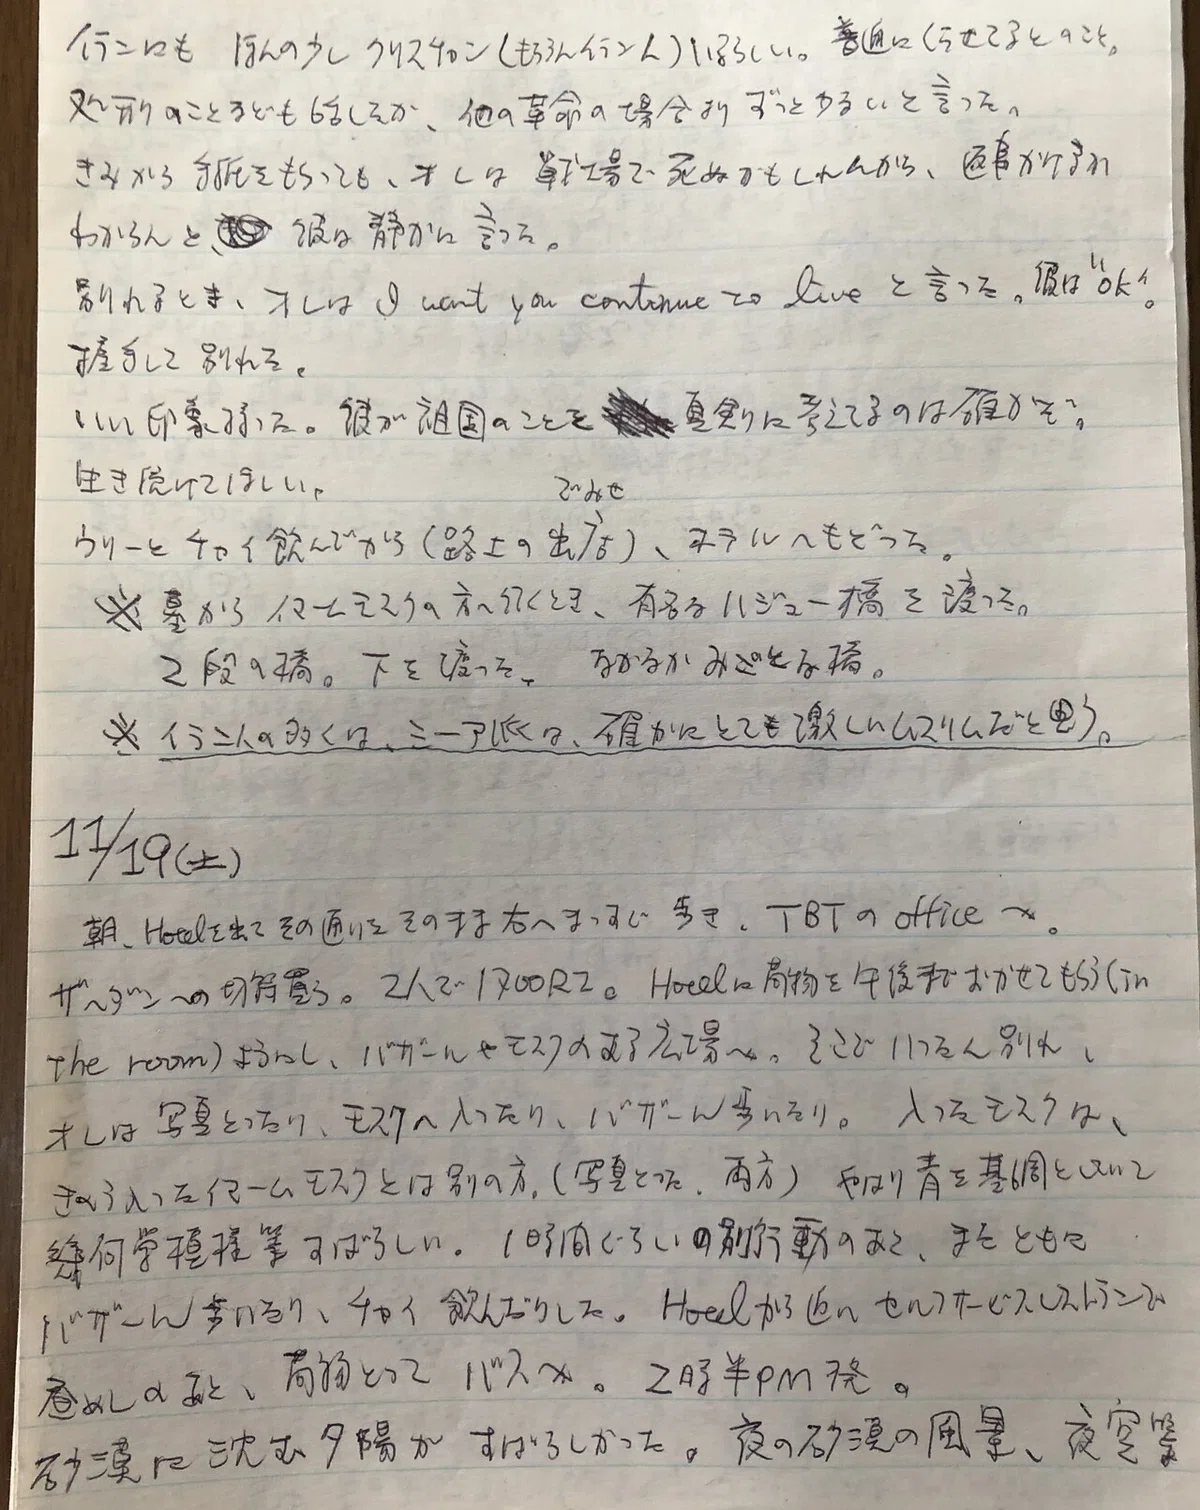 イランにも ほんの少し クリスチャン(もちろんイラン人)いるらしい。普通に(行せてるとのこと。
処刑のことなども話したが、他の革命の場合より ずっとゆるいと言った。
きみから手紙をもらっても、オレは 戦場で死ぬかもしれんから、返事かけるか
わからんと、彼は静かに言った。
別れるとき、オレは I want you continue to live と言った。彼は"OK"。
握手して別れた。
いい印象残った。彼が祖国のことを 真剣に考えてるのは確かだ。
生き続けてほしい。
でみせ
ウリーと チャイ飲んでから(路上の出店)、ホテルへもどった。
※ 墓から イマームモスクの方へ行くとき、有名なハジュー橋を渡った。
2段の橋。下を渡った。 なかなかみごとな橋。
※ イラン人の多くは、シーア派は、確かにとても激しいムスリムだと思う。
11/19(土)
朝、Hotelを出て その通りを そのまま右へまっすぐ歩き、TBTのofficeへ。
ザヘダンへの切符買う。2人で1700RZ。Hotelに荷物を午後までおかせてもらう(in
the room)ようにし、バザールやモスクのある広場へ。そこでいったん別れ、
オレは写真とったり、モスクへ入ったり、バザール歩いたり。 入ったモスクは、
きのう入ったイマームモスクとは別の方。(写真とった、両方) やはり青を基調としていて
幾何学模様等すばらしい。1時間ぐらいの別行動のあと、またともに
バザール歩いたり、チャイ飲んだりした。Hotelから近い セルフサービスレストランで
昼めしのあと、荷物とって バスへ。2時半PM発。
砂漠に沈む夕陽がすばらしかった。夜の砂漠の風景、夜空等